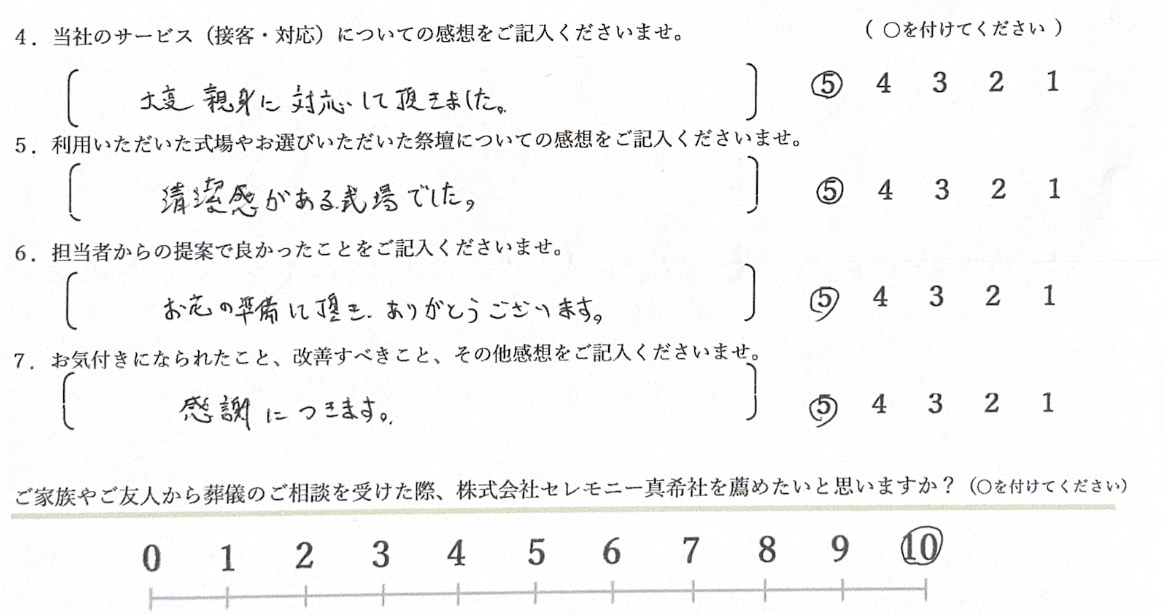 4. 当社のサービス（接客・対応）についての感想をご記入くださいませ。 （ ○を付けてください ）
大変 親身に 対応して頂きました。 5 4 3 2 1
5. 利用いただいた式場やお選びいただいた祭壇についての感想をご記入くださいませ。
清潔感がある式場でした。 5 4 3 2 1
6. 担当者からの提案で良かったことをご記入くださいませ。
お花の準備して頂き、ありがとうございます。 5 4 3 2 1
7. お気付きになられたこと、改善すべきこと、その他感想をご記入くださいませ。
感謝につきます。 5 4 3 2 1
ご家族やご友人から葬儀のご相談を受けた際、株式会社セレモニー真希社を薦めたいと思いますか？（○を付けてください）
0 1 2 3 4 5 6 7 8 9 10